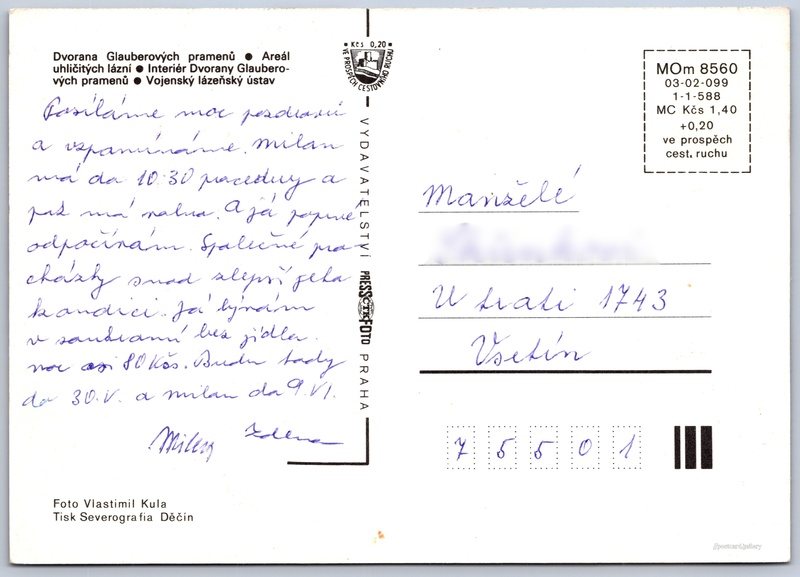 Dvorana Glauberových pramenů ● Areál
uhličitých lázní ● Interiér Dvorany Glaubero-
vých pramenů ● Vojenský lázeňský ústav
Posíláme moc pozdravů
a vzpomínáme. Milan
má do 10.30 procedury a
pak má volno. A já poprvé
odpočívám. Společné pro-
cházky snad zlepší jeho
kondici. Já bývám
v soukromí bez jídla.
noc asi 80 Kčs. Budu tady
do 30.V. a Milan do 9.VI.
Milan Zdena
Foto Vlastimil Kula
Tisk Severografia Děčín
Kčs 0,20
VE PROSPĚCH CESTOVNÍHO RUCHU
VYDAVATELSTVÍ
PRESSFOTO
ČTK
PRAHA
MOm 8560
03-02-099
1-1-588
MC Kčs 1,40
+0,20
ve prospěch
cest. ruchu
Manželé
U trati 1743
Vsetín
7 5 5 0 1